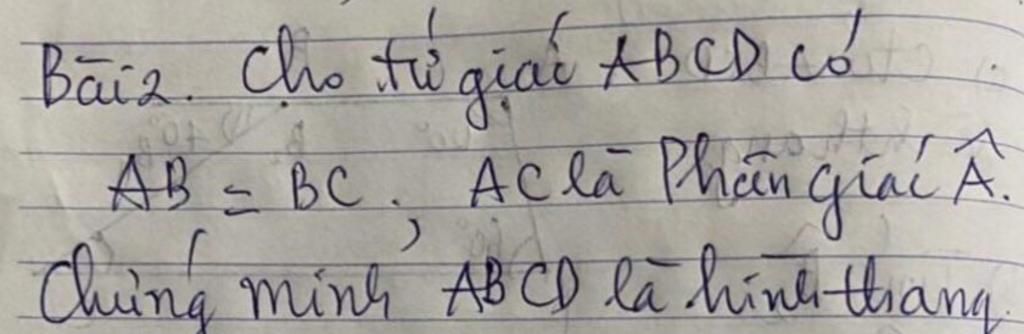 Bài 2. Cho tứ giác ABCD có
AB = BC, AC là Phân giác Â.
Chứng minh ABCD là hình thang.